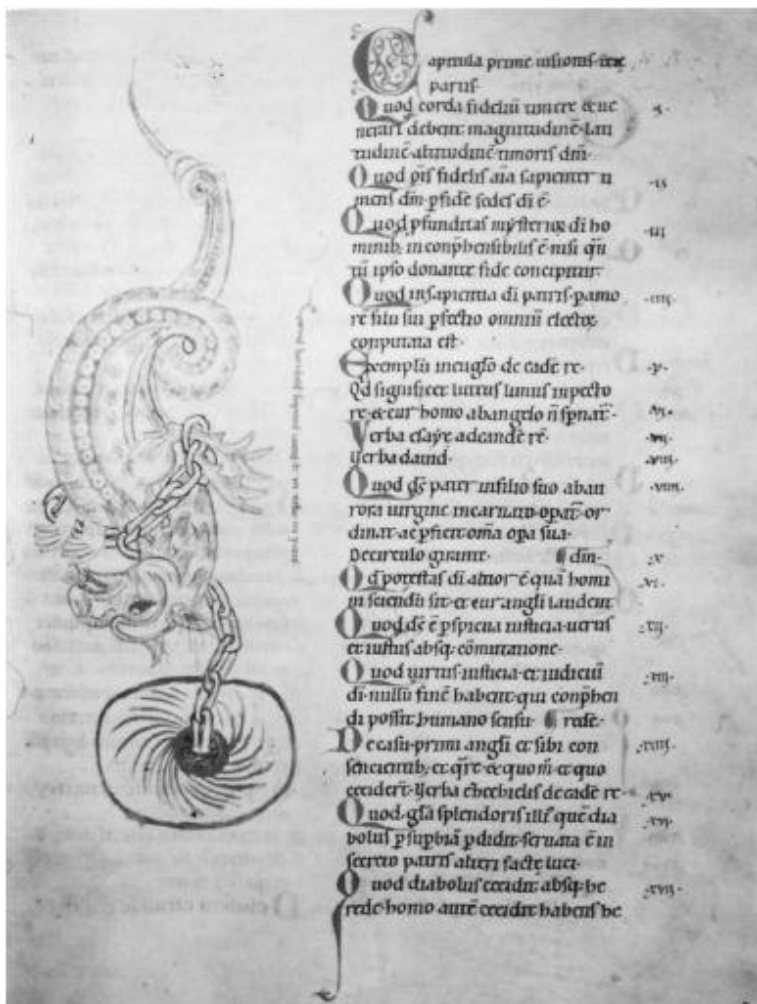 Capitula prime uisionis tercie
partis.
Quod corda fideliū timere & ue
nerari debent magnitudinē lati
tudinē altitudinē timoris dm̄. .i.
Quod om̄is fidelis aīa sapienter ti
mens dm̄ p fidē sedes dī ē. .ii.
Quod pfunditas mysterioꝝ dī ho
minib; incōp̄hensibilis ē nisi q̄n
tū ipso donante fide concipitur. .iii.
Quod in sapientia dī patris p amo
re filii sui pfectio omniū electoꝝ
conputata est. .iiii.
Exemplū in euglō de eadē re. .v.
Qd significet lutus limus in pecto
re & cur homo ab angelo n̄ spnat̄. .vi.
Verba esaye ad eandē rē. .vii.
Verba dauid. .viii.
Quod dē pater in filio suo ab au
rora uirgine incarnato opat̄ or
dinat ac pficit om̄a opa sua. .viiii.
De circulo girante dm̄. .x.
Qd potestas dī altior ē quā homi
ni sciendū sit et cur angli laudent .xi.
Quod dē ē pspicua iusticia uerus
et iustus absq; cōmutatione. .xii.
Quod uirtus iusticia et iudiciū
dī nullū finē habent qui conp̄hen
di possit humano sensu .xiii.
De casu primi angli et sibi con
sencientib; et q̄re & quom̄ et quo
cecidert̄. Verba ezechielis de eadē re. .xiiii. .xv.
Quod glā splendoris illi quē dia
bolus p supbiā pdidit seruata ē in
secreto patris alteri facte luci. .xvi.
Quod diabolus cecidit absq; he
rede homo autē cecidit habens he
rede. .xvii.